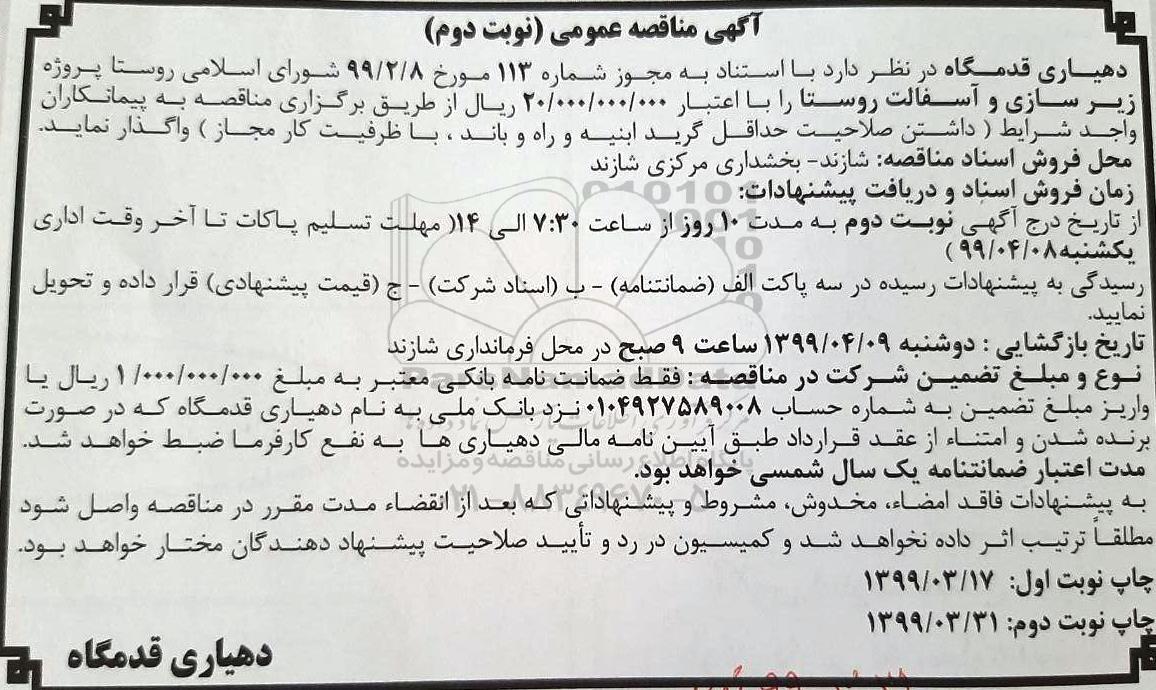 آگهی مناقصه عمومی (نوبت دوم)
دهیاری قدمگاه در نظر دارد با استناد به مجوز شماره ۱۱۳ مورخ ۹۹/۲/۸ شورای اسلامی روستا پروژه
زیر سازی و آسفالت روستا را با اعتبار ۲۰/۰۰۰/۰۰۰/۰۰۰ ریال از طریق برگزاری مناقصه به پیمانکاران
واجد شرایط ( داشتن صلاحیت حداقل گرید ابنیه و راه و باند ، با ظرفیت کار مجاز ) واگذار نماید.
محل فروش اسناد مناقصه: شازند- بخشداری مرکزی شازند
زمان فروش اسناد و دریافت پیشنهادات:
از تاریخ درج آگهی نوبت دوم به مدت ۱۰ روز از ساعت ۷:۳۰ الی ۱۴( مهلت تسلیم پاکات تا آخر وقت اداری
یکشنبه۹۹/۰۴/۰۸ )
رسیدگی به پیشنهادات رسیده در سه پاکت الف (ضمانتنامه) - ب (اسناد شرکت) - ج (قیمت پیشنهادی) قرار داده و تحویل
نمایید.
تاریخ بازگشایی : دوشنبه ۱۳۹۹/۰۴/۰۹ ساعت ۹ صبح در محل فرمانداری شازند
نوع و مبلغ تضمین شرکت در مناقصه : فقط ضمانت نامه بانکی معتبر به مبلغ ۱/۰۰۰/۰۰۰/۰۰۰ ریال یا
واریز مبلغ تضمین به شماره حساب ۰۱۰۴۹۲۷۵۸۹۰۰۸ نزد بانک ملی به نام دهیاری قدمگاه که در صورت
برنده شدن و امتناء از عقد قرارداد طبق آیین نامه مالی دهیاری ها به نفع کارفرما ضبط خواهد شد.
مدت اعتبار ضمانتنامه یک سال شمسی خواهد بود.
به پیشنهادات فاقد امضاء، مخدوش، مشروط و پیشنهاداتی که بعد از انقضاء مدت مقرر در مناقصه واصل شود
مطلقاً ترتیب اثر داده نخواهد شد و کمیسیون در رد و تأیید صلاحیت پیشنهاد دهندگان مختار خواهد بود.
چاپ نوبت اول: ۱۳۹۹/۰۳/۱۷
چاپ نوبت دوم: ۱۳۹۹/۰۳/۳۱
دهیاری قدمگاه
پایگاه اطلاع رسانی مناقصه و مزایده